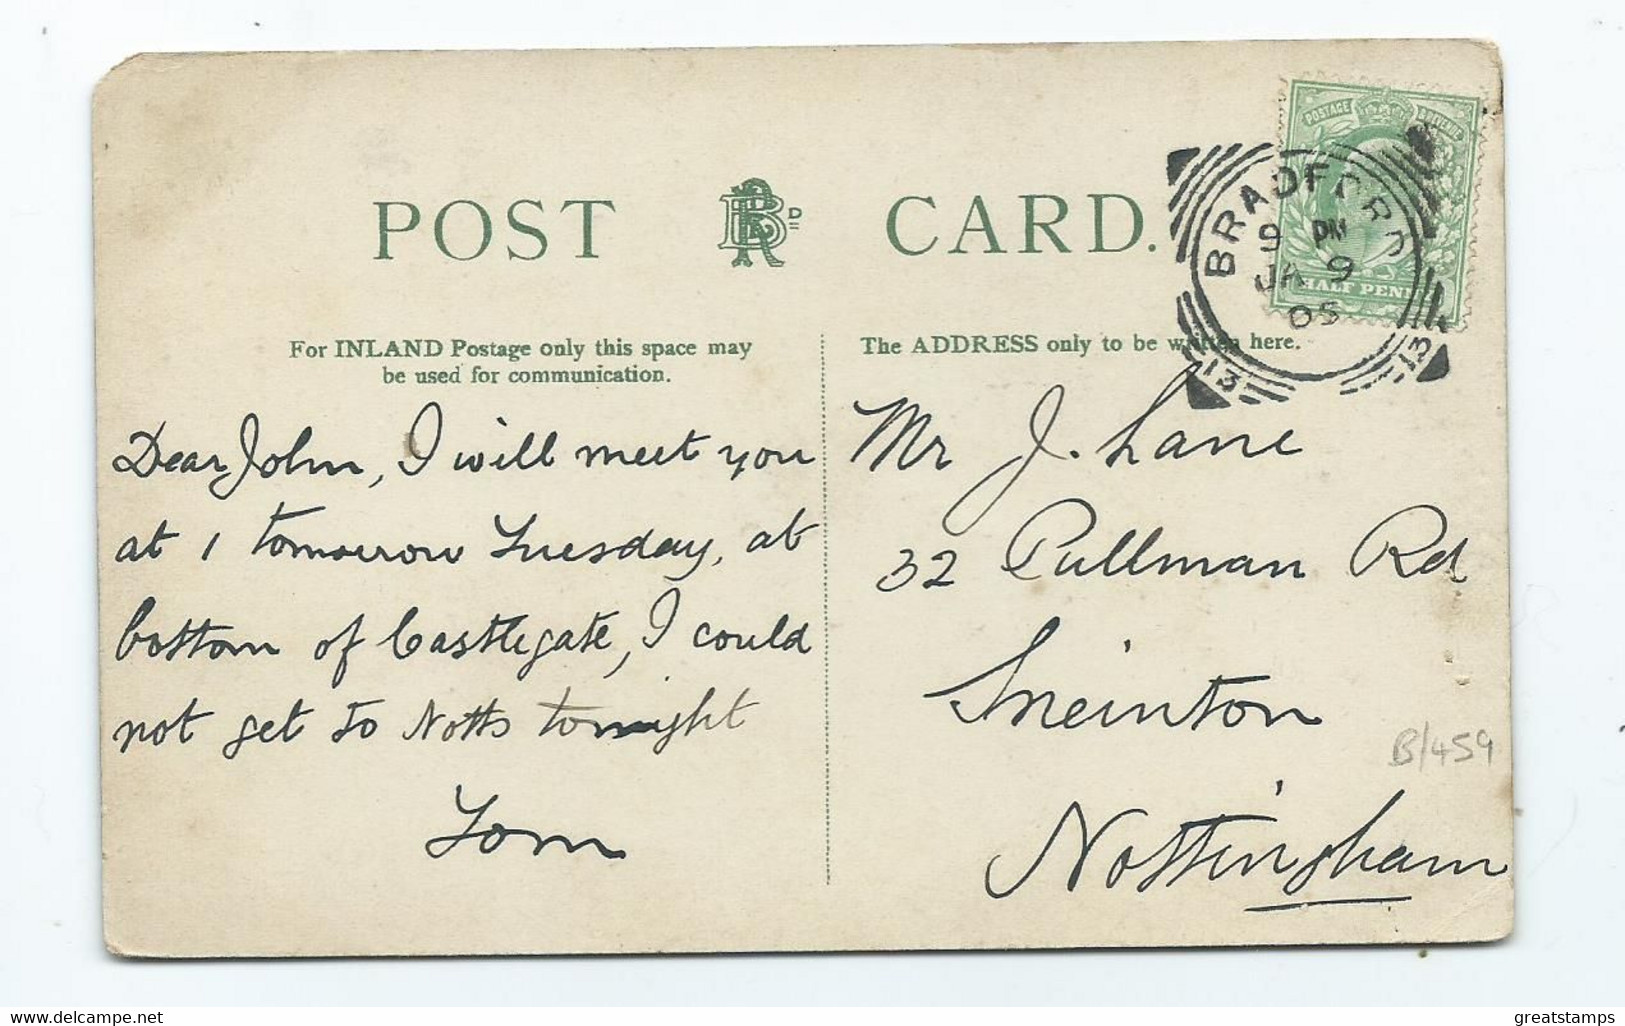 POST CARD.
For INLAND Postage only this space may
be used for communication.
The ADDRESS only to be written here.
POSTAGE & REVENUE
HALF PENNY
BRADFORD
9 PM
JA 9
05
13 13
Dear John, I will meet you
at 1 tomorrow Tuesday, at
bottom of Castlegate, I could
not get to Notts tonight
Tom
Mr J. Lane
32 Pullman Rd
Sneinton
Nottingham
B/459
www.delcampe.net
greatstamps